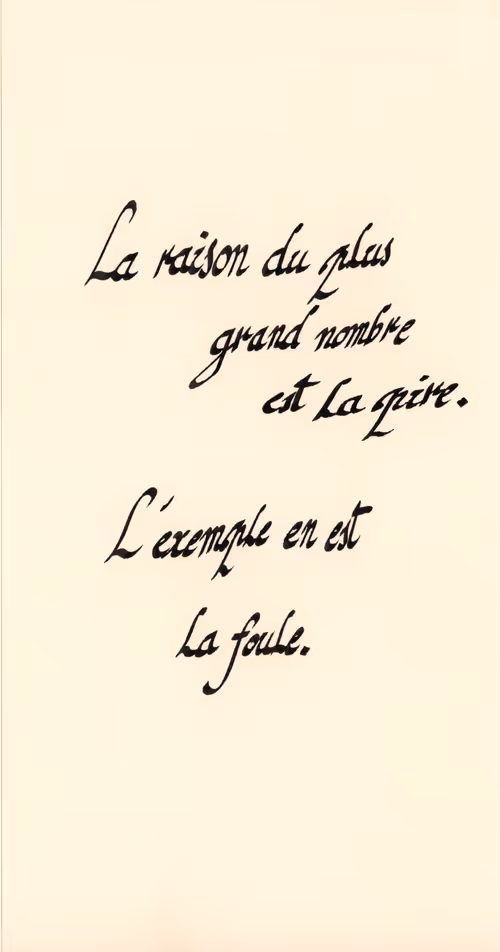 La raison du plus
grand nombre
est la pire.
L'exemple en est
la foule.